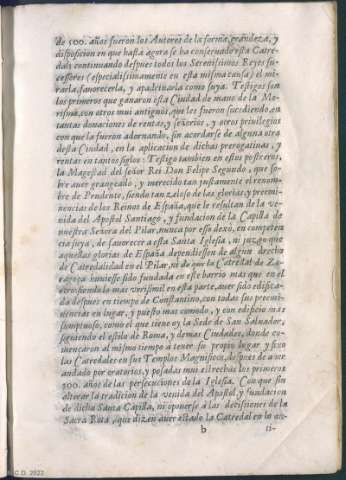 de 500. años fueron los Autores de la forma, grandeza, y
disposicion en que hasta agora se ha conseruado esta Catre-
dal; continuando despues todos los Serenissimos Reyes suc-
cessores (especialissimamente en esta misma causa) el mi-
rarla, fauorecerla, y apadrinarla como suya. Testigos son
los primeros que ganaron esta Ciudad de mano de la Mo-
risma, con otros mui antiguos, que les fueron sucediendo, en
tantas donaciones de rentas, y señorios, y otros priuilegios
con que la fueron adornando, sin acordarse de alguna otra
desta Ciudad, en la aplicacion de dichas prerogatiuas, y
rentas en tantos siglos: Testigo tambien en estos postreros,
la Magestad del señor Rei Don Felipe Segundo, que so-
bre auer grangeado, y merecido tan justamente el renom-
bre de Prudente, siendo tan zeloso de las glorias, y preemi-
nencias de los Reinos de España, que le resultan de la ve-
nida del Apostol Santiago, y fundacion de la Capilla de
nuestra Señora del Pilar, nunca por esso dexò, en competen-
cia suya, de fauorecer a esta Santa Iglesia, ni juzgò que
aquellas glorias de España dependiessen de algun derecho
de Catredalidad en el Pilar, ni de que la Catredal de Za-
ragoça huuiesse sido fundada en este barrio mas que en el
otro; siendo lo mas verisimil en esta parte, auer sido edifica-
da despues en tiempo de Constantino, con todas sus preemi-
nencias en lugar, y puesto mas comodo, y con edificio mas
sumptuoso, como el que tiene oy la Sede de San Saluador,
siguiendo el estilo de Roma, y demas Ciudades, donde co-
mencaron al mismo tiempo a tener su propio lugar y sitio
las Catredales en sus Templos Magnificos, despues de auer
andado por oratorios, y posadas mui estrechas los primeros
300. años de las persecuciones de la Iglesia. Con que sin
alterar la tradicion de la venida del Apostol, y fundacion
de dicha Santa Capilla, ni oponerse a las decisiones de la
Sacra Rota, que dizen auer estado la Catredal en lo an-
b
ti-
C.D. 2922